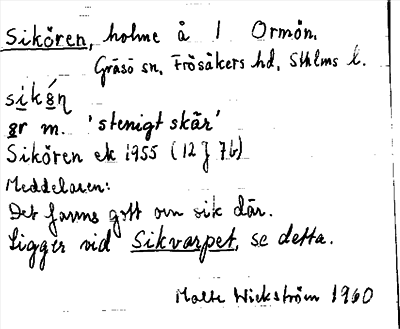 Sikören, holme å 1 Ormön.
Gräsö sn, Frösåkers hd, Sthlms l.
sikǿn
gr m. 'stenigt skär'
Sikören ek 1955 (12 J 7b)
Meddelaren:
Det fanns gott om sik där.
Ligger vid Sikvarpet, se detta.
Malte Wickström 1960